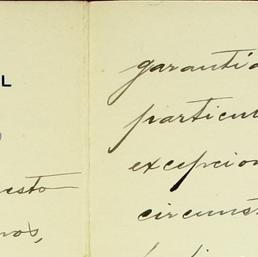 L
esto
nos,
garantia
particul
excepcion
circunst